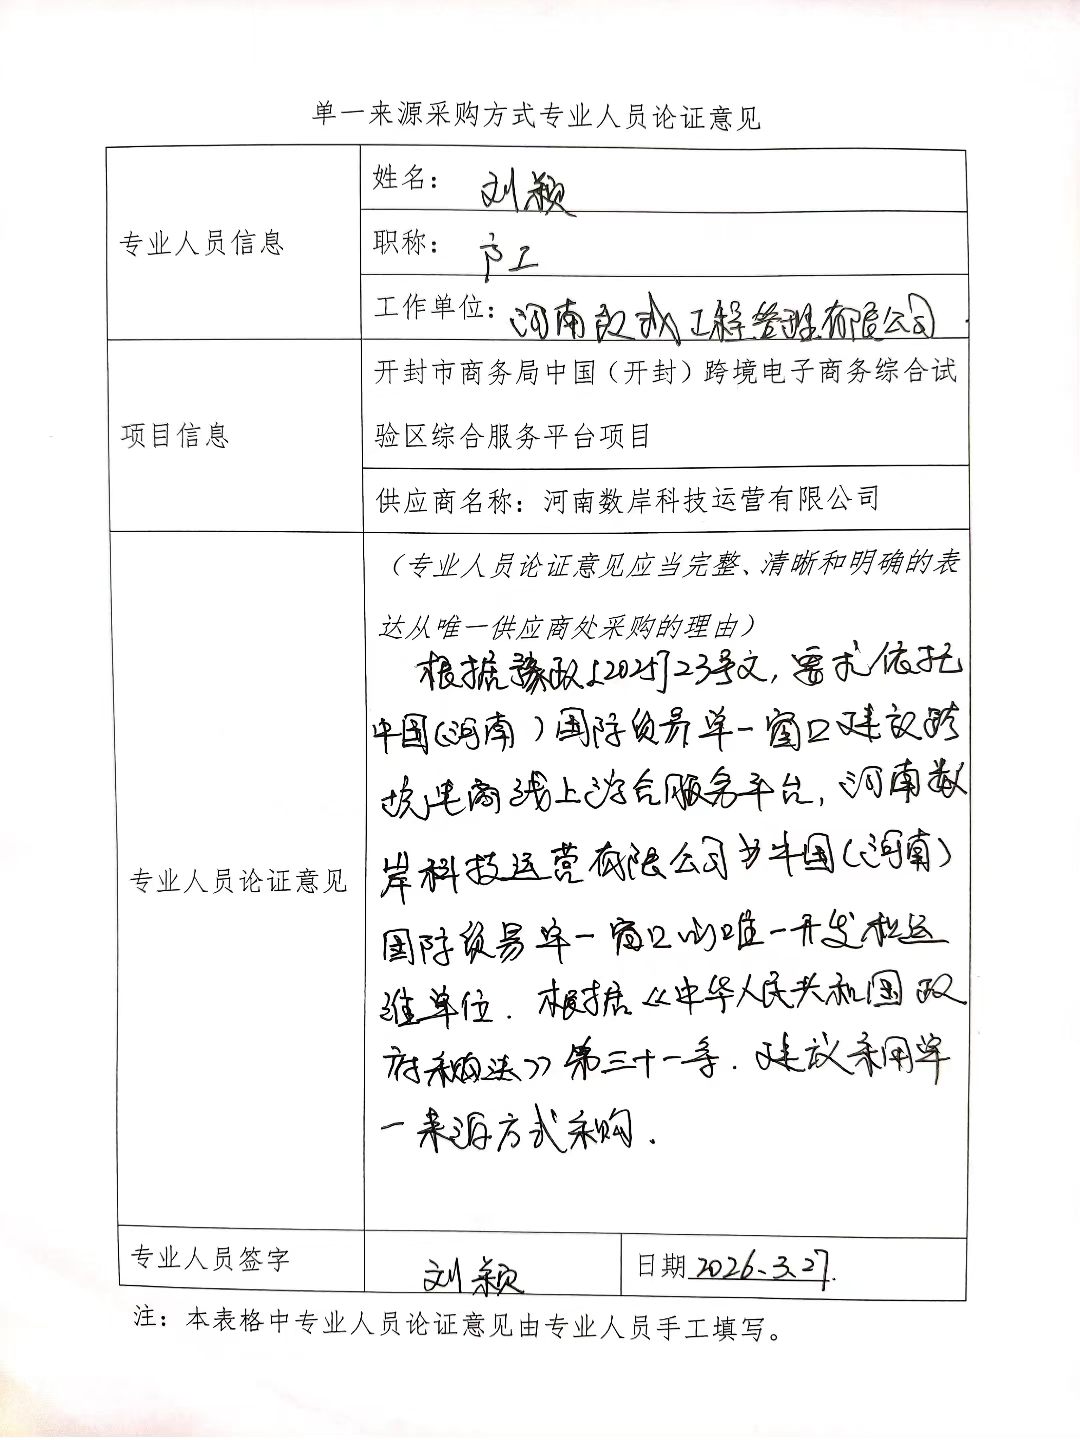 单一来源采购方式专业人员论证意见
专业人员信息
姓名： 刘颖
职称： 高工
工作单位：河南 工程管理有限公司
项目信息
开封市商务局中国（开封）跨境电子商务综合试
验区综合服务平台项目
供应商名称：河南数岸科技运营有限公司
专业人员论证意见
（专业人员论证意见应当完整、清晰和明确的表
达从唯一供应商处采购的理由）
根据豫政〔2025〕23号文，要求依托
中国（河南）国际贸易单一窗口建设跨
境电商线上综合服务平台，河南数
岸科技运营有限公司为中国（河南）
国际贸易单一窗口的唯一开发和运
维单位．根据《中华人民共和国政
府采购法》第三十一条．建议采用单
一来源方式采购．
专业人员签字
刘颖
日期 2026.3.27.
注：本表格中专业人员论证意见由专业人员手工填写。